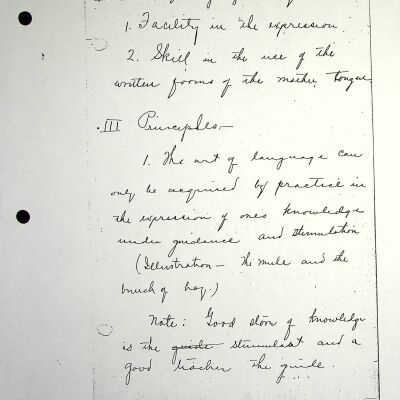 1. Facility in the expression
2. Skill in the use of the
written forms of the mother tongue
III Principles—
1. The art of language can
only be acquired by practice in
the expression of ones knowledge
under guidance and stimulation
(Illustration — The mule and the
bunch of hay.)
Note: Good store of knowledge
is the guide stimulant and a
good teacher the guide.